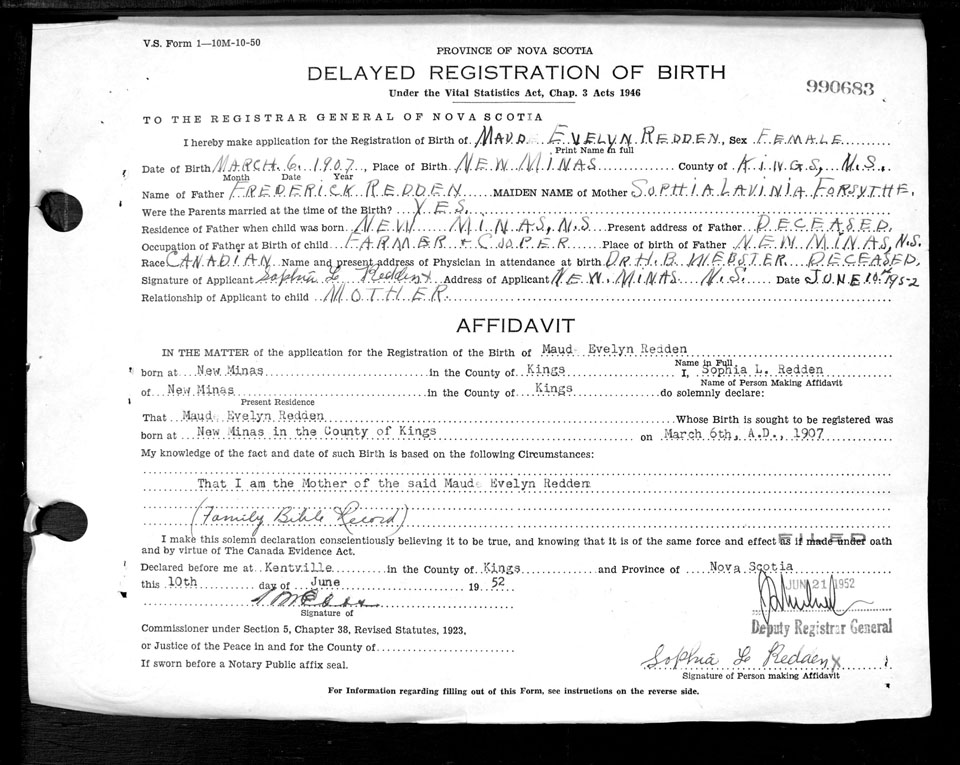 V.S. Form 1—10M-10-50
PROVINCE OF NOVA SCOTIA
DELAYED REGISTRATION OF BIRTH
990683
Under the Vital Statistics Act, Chap. 3 Acts 1946
TO THE REGISTRAR GENERAL OF NOVA SCOTIA
I hereby make application for the Registration of Birth of MAUD EVELYN REDDEN, Sex FEMALE
Print Name in full
Date of Birth MARCH 6, 1907, Place of Birth NEW MINAS County of KINGS, N.S.
Month Date Year
Name of Father FREDERICK REDDEN MAIDEN NAME of Mother SOPHIA LAVINIA FORSYTHE.
Were the Parents married at the time of the Birth? YES.
Residence of Father when child was born NEW MINAS, N.S Present address of Father DECEASED.
Occupation of Father at Birth of child FARMER & COOPER Place of birth of Father NEW MINAS, N.S.
Race CANADIAN Name and present address of Physician in attendance at birth DR. H. B. WEBSTER DECEASED.
Signature of Applicant Sophia L Redden x Address of Applicant NEW MINAS N.S. Date JUNE 10th 1952
Relationship of Applicant to child MOTHER.
AFFIDAVIT
IN THE MATTER of the application for the Registration of the Birth of Maud Evelyn Redden
Name in Full
born at New Minas in the County of Kings I, Sophia L. Redden
Name of Person Making Affidavit
of New Minas in the County of Kings do solemnly declare:
Present Residence
That Maud Evelyn Redden Whose Birth is sought to be registered was
born at New Minas in the County of Kings on March 6th, A.D., 1907
My knowledge of the fact and date of such Birth is based on the following Circumstances:
That I am the Mother of the said Maud Evelyn Redden
(Family Bible Record)
I make this solemn declaration conscientiously believing it to be true, and knowing that it is of the same force and effect as if made under oath
FILED
and by virtue of The Canada Evidence Act.
Declared before me at Kentville in the County of Kings and Province of Nova Scotia
this 10th day of June 19 52
JUN 21 1952
Signature of
Deputy Registrar General
Commissioner under Section 5, Chapter 38, Revised Statutes, 1923,
or Justice of the Peace in and for the County of
Sophia L Redden x
If sworn before a Notary Public affix seal.
Signature of Person making Affidavit
For Information regarding filling out of this Form, see instructions on the reverse side.